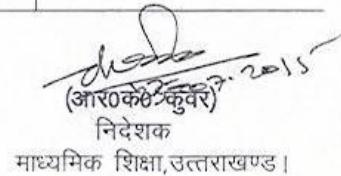 07.2015
(आर०के० कुंवर)
निदेशक
माध्यमिक शिक्षा,उत्तराखण्ड।